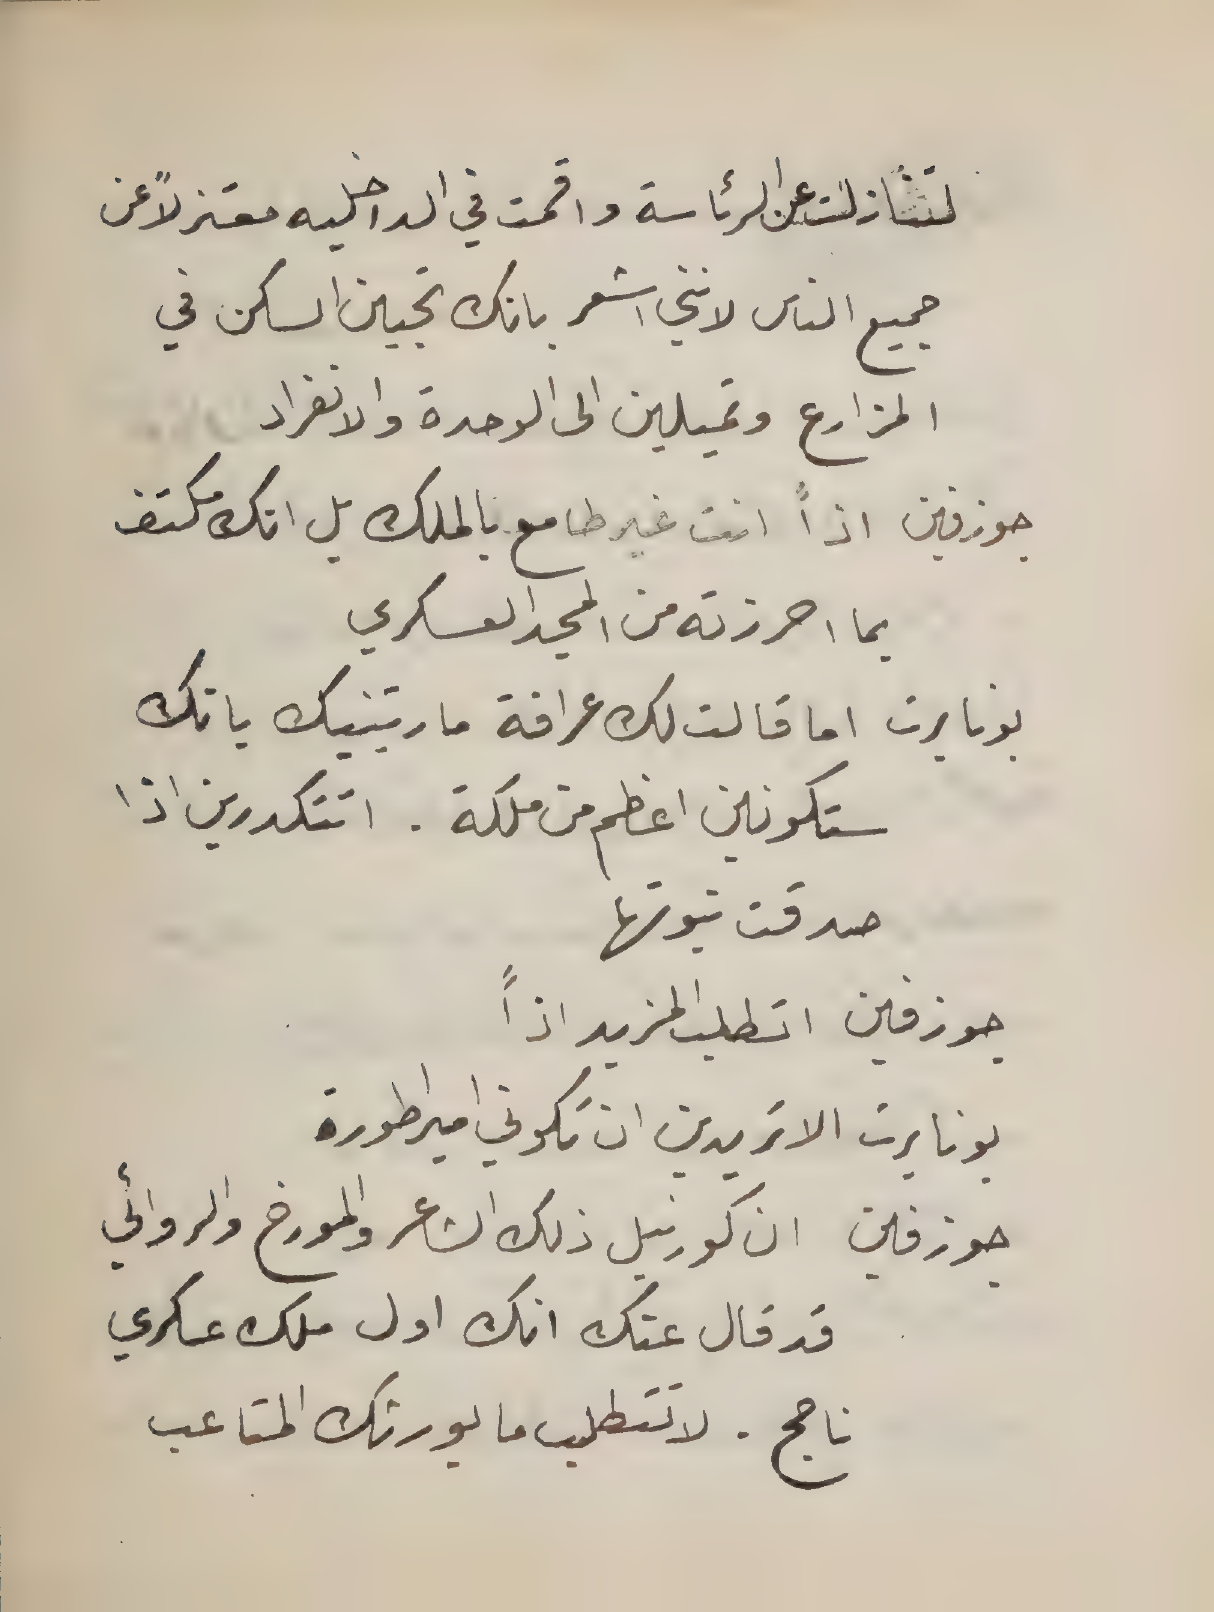 لتنازلت عن الرئاسة واقمت في الداخليه معتزلاً عن
جميع الناس لانني اشعر بانك تحبين السكن في
المزارع وتميلين الى الوحدة والانفراد
جوزفين اذاً انت غير طامع بالملك بل انك مكتف
بما احرزته من المجد العسكري
بونابرت اما قالت لك عرافة مارتينيك بانك
ستكونين اعظم من ملكة . اتتكدرين اذا
صدقت نبوتها
جوزفين اتطلب المزيد اذاً
بونابرت الا تريدين ان تكوني امبراطورة
جوزفين ان كورنيل ذلك الشاعر والمورخ والروائي
قد قال عنك انك اول ملك عسكري
ناجح . لا تتطلب ما يورثك المتاعب